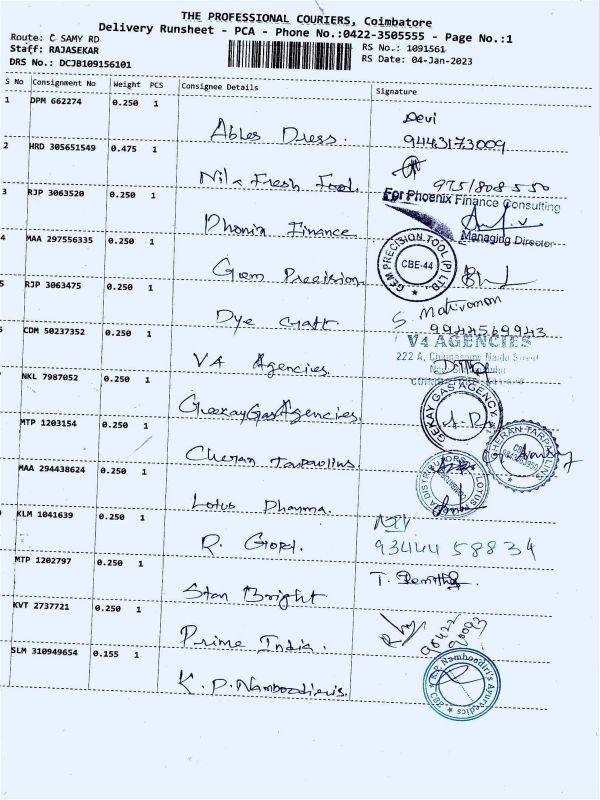 THE PROFESSIONAL COURIERS, Coimbatore
Delivery Runsheet - PCA - Phone No.:0422-3505555 - Page No.:1
Route: C SAMY RD
Staff: RAJASEKAR
DRS No.: DCJB109156101
RS No.: 1091561
RS Date: 04-Jan-2023
S No Consignment No Weight PCS Consignee Details Signature
1 DPM 662274 0.250 1
Ables Dress. Devi
9443173009
2 HRD 305651549 0.475 1
Nila Fresh Food.
3 RJP 3063520 0.250 1
For Phoenix Finance Consulting
Phonix Finance
Managing Director
4 MAA 297556335 0.250 1
Gem Precision
GEM PRECISION TOOL (P) LTD
CBE-44
5 RJP 3063475 0.250 1
Dye Craft
S. Mathivanan
9944569943
6 CDM 50237352 0.250 1
V4 Agencies
V4 AGENCIES
NKL 7987052 0.250 1
Geekay Gas Agencies
GEKAY GAS AGENCY
MTP 1203154 0.250 1
Cheran Tarpaulins
CHERAN TARPAULIN
MAA 294438624 0.250 1
Lotus Pharma.
LOTUS
KLM 1041639 0.250 1
R. Gopi.
93444 58834
MTP 1202797 0.250 1
Star Bright
KVT 2737721 0.250 1
Prime India.
SLM 310949654 0.155 1
K.P. Namboodiris.
K.P. Namboodiri's Ayurvedics
CBE